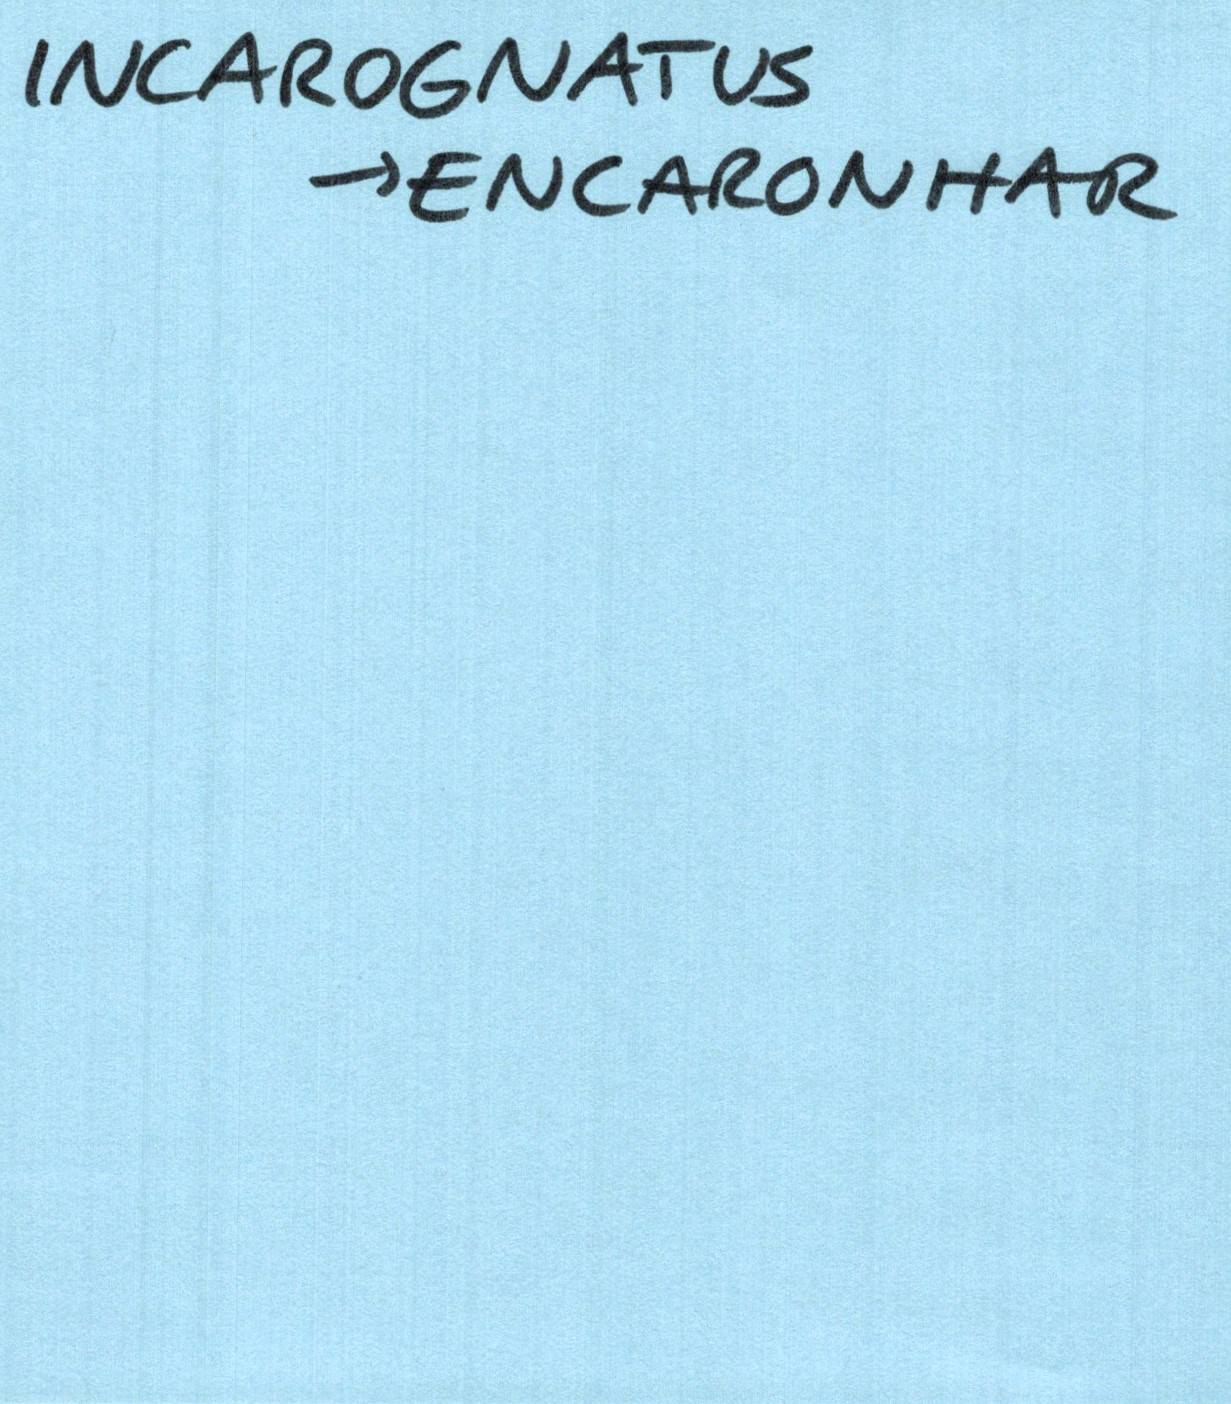 INCAROGNATUS
→ENCARONHAR